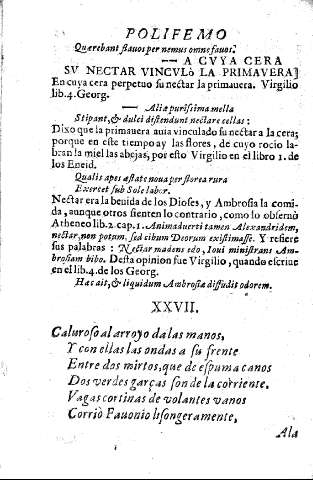 POLIFEMO
Quærebant flauos per nemus omne fauos.
— A CVYA CERA
SV NECTAR VINCVLÒ LA PRIMAVERA]
En cuya cera perpetuo su nectar la primauera. Virgilio
lib.4. Georg.
— Aliæ purissima mella
Stipant, & dulci distendunt nectare cellas:
Dixo que la primauera auia vinculado su nectar a la cera;
porque en este tiempo ay las flores, de cuyo rocio la-
bran la miel las abejas, por esto Virgilio en el libro 1. de
los Eneid.
Qualis apes æstate noua per florea rura
Exercet sub Sole labor.
Nectar era la beuida de los Dioses, y Ambrosia la comi-
da, aunque otros sienten lo contrario, como lo obseruò
Atheneo lib.2. cap.1. Animaduerti tamen Alexandridem,
nectar, non potum, sed cibum Deorum existimasse. Y refiere
sus palabras: Nectar madens edo, Ioui ministrans Am-
brosiam bibo. Desta opinion fue Virgilio, quando escriue
en el lib.4. de los Georg.
Hæc ait, & liquidum Ambrosiæ diffudit odorem.
XXVII.
Caluroso al arroyo da las manos,
Y con ellas las ondas a su frente
Entre dos mirtos, que de espuma canos
Dos verdes garças son de la corriente.
Vagas cortinas de volantes vanos
Corriò Fauonio lisongeramente,
Ala